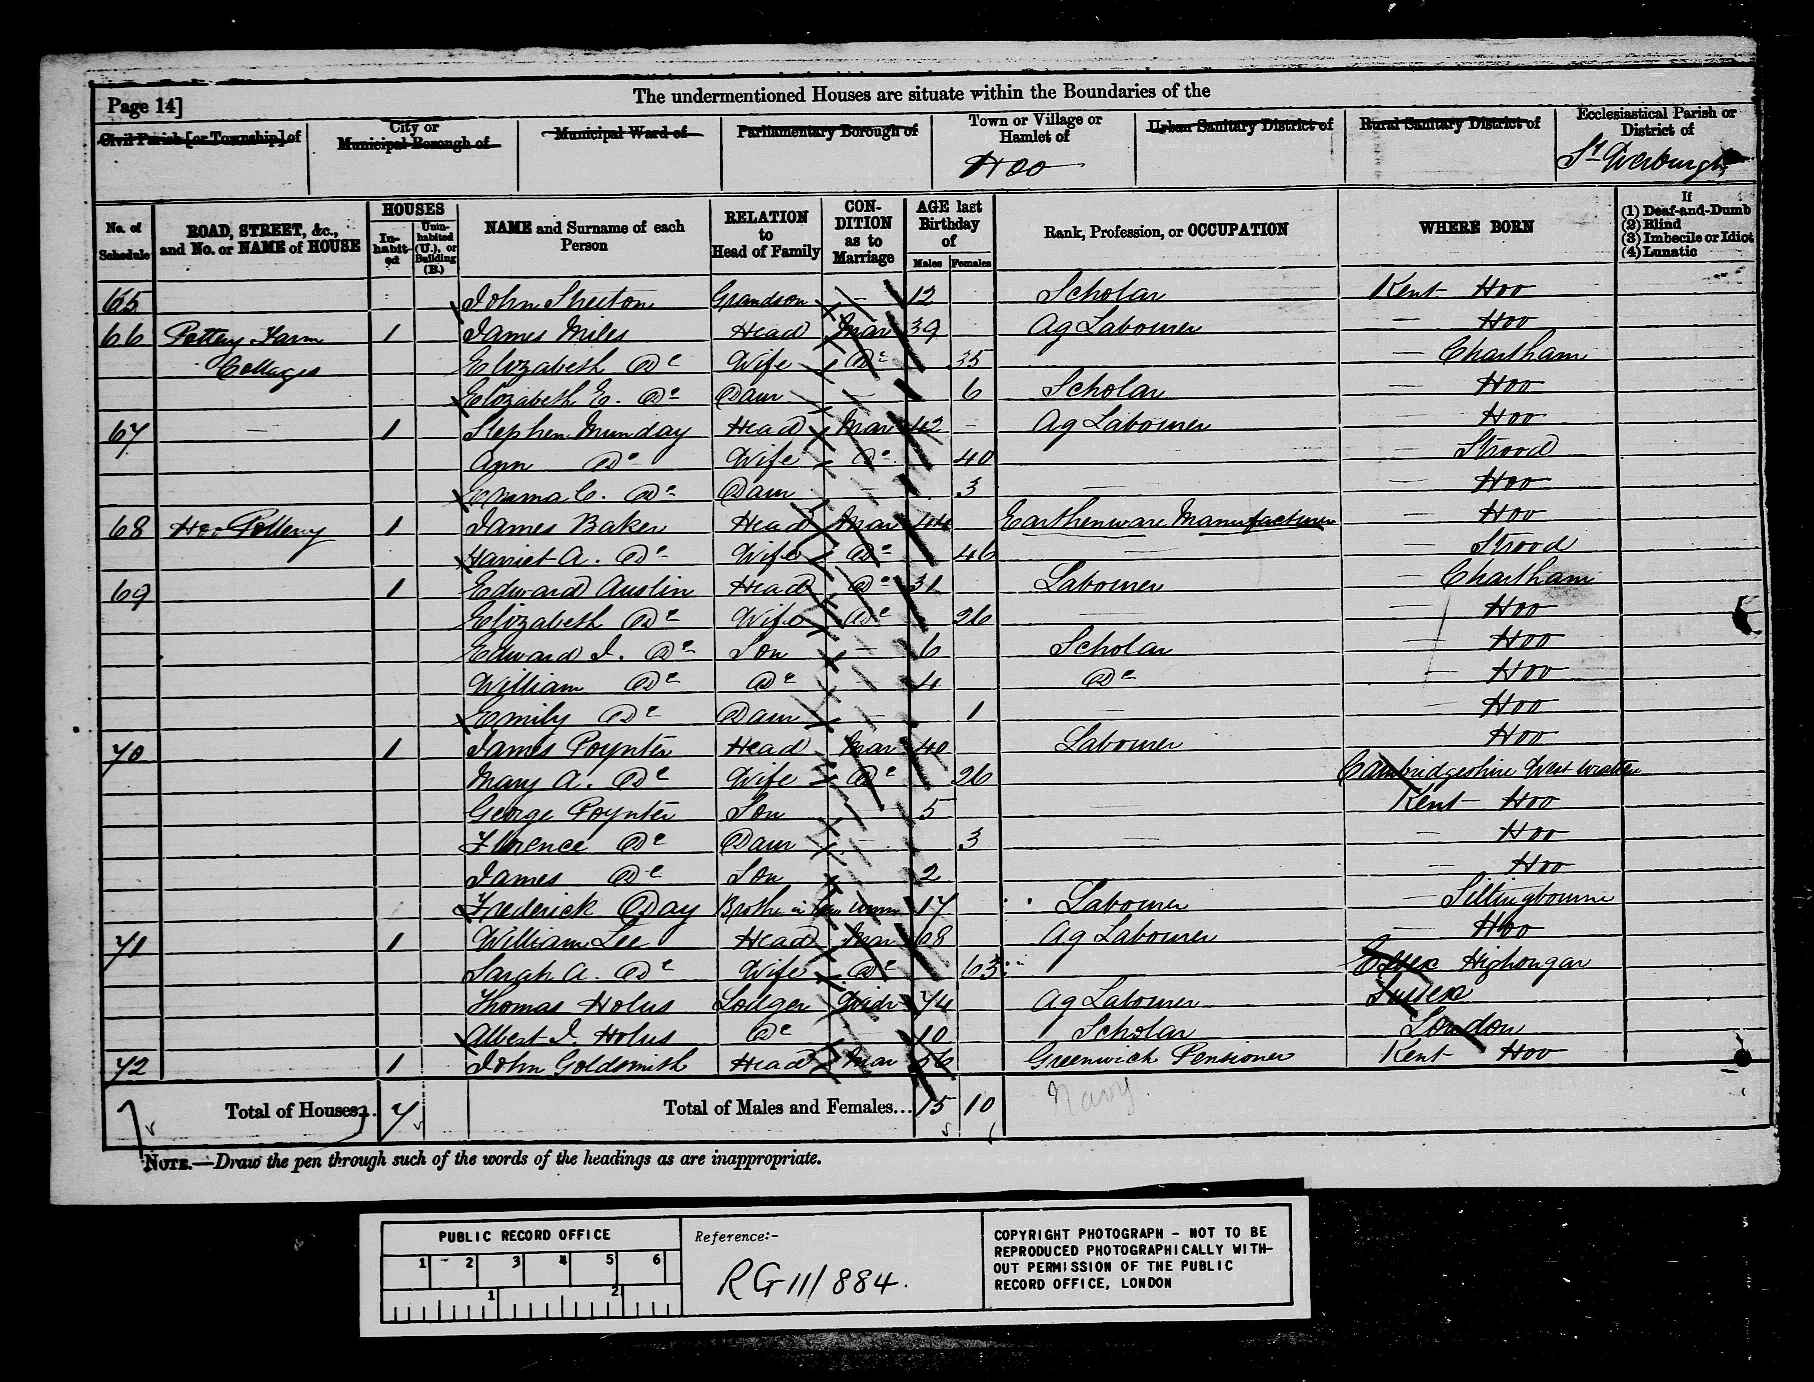 Page 14]
The undermentioned Houses are situate within the Boundaries of the
Civil Parish [or Township] of
City or Municipal Borough of
Municipal Ward of
Parliamentary Borough of
Town or Village or Hamlet of
Hoo
Urban Sanitary District of
Rural Sanitary District of
Ecclesiastical Parish or District of
St Werburgh
No. of Schedule
ROAD, STREET, &c., and No. or NAME of HOUSE
HOUSES
In-habit-ed
Unin-habited (U.), or Building (B.)
NAME and Surname of each Person
RELATION to Head of Family
CON-DITION as to Marriage
AGE last Birthday of
Males Females
Rank, Profession, or OCCUPATION
WHERE BORN
If
(1) Deaf-and-Dumb
(2) Blind
(3) Imbecile or Idiot
(4) Lunatic
65 John Grandson - 12 Scholar Kent Hoo
66 Pottery Farm 1 James Miles Head Mar 39 Ag Labourer - Hoo
Cottages Elizabeth Do Wife Do 35 - Chartham
Elizabeth E. Do Daur - 6 Scholar - Hoo
67 - 1 Stephen Munday Head Mar 42 Ag Labourer - Hoo
Ann Do Wife Do 40 Strood
Emma C. Do Daur - 3 - Hoo
68 Hoo Pottery 1 James Baker Head Mar 44 Earthenware Manufacturer - Hoo
Harriet A. Do Wife Do 46 - Strood
69 1 Edward Austin Head Do 31 Labourer - Chartham
Elizabeth Do Wife Do 26 - - Hoo
Edward J. Do Son - 6 Scholar - Hoo
William Do Do - 4 Do - Hoo
Emily Do Daur - 1 - - Hoo
70 1 James Poynter Head Mar 40 Labourer Hoo
Mary A. Do Wife Do 26 Cambridgeshire West Wratten
George Poynter Son 5 Kent Hoo
Florence Do Daur - 3 - Hoo
James Do Son 2 - Hoo
Frederick Day Brother in law Unm 17 Labourer - Sittingbourne
71 1 William Lee Head Mar 68 Ag Labourer - Hoo
Sarah A. Do Wife Do 63 Essex Highongar
Thomas Holus Lodger Widr 74 Ag Labourer Sussex
Albert J. Holus Do 10 Scholar London
72 1 John Goldsmith Head Mar 56 Greenwich Pensioner Kent Hoo
Navy
Total of Houses... 7
Total of Males and Females... 15 10
NOTE.—Draw the pen through such of the words of the headings as are inappropriate.
PUBLIC RECORD OFFICE
1 2 3 4 5 6
1 2
Reference:-
RG 11/884.
COPYRIGHT PHOTOGRAPH - NOT TO BE
REPRODUCED PHOTOGRAPHICALLY WITH-
OUT PERMISSION OF THE PUBLIC
RECORD OFFICE, LONDON